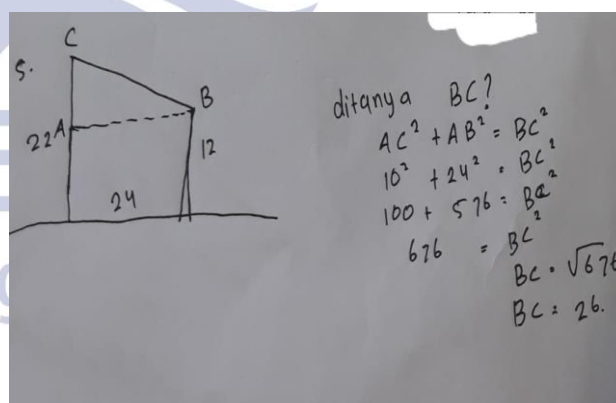 5.
C
B
22 A
12
24
ditanya BC?
AC² + AB² = BC²
10² + 24² = BC²
100 + 576 = BC²
676 = BC²
BC = √676
BC = 26.